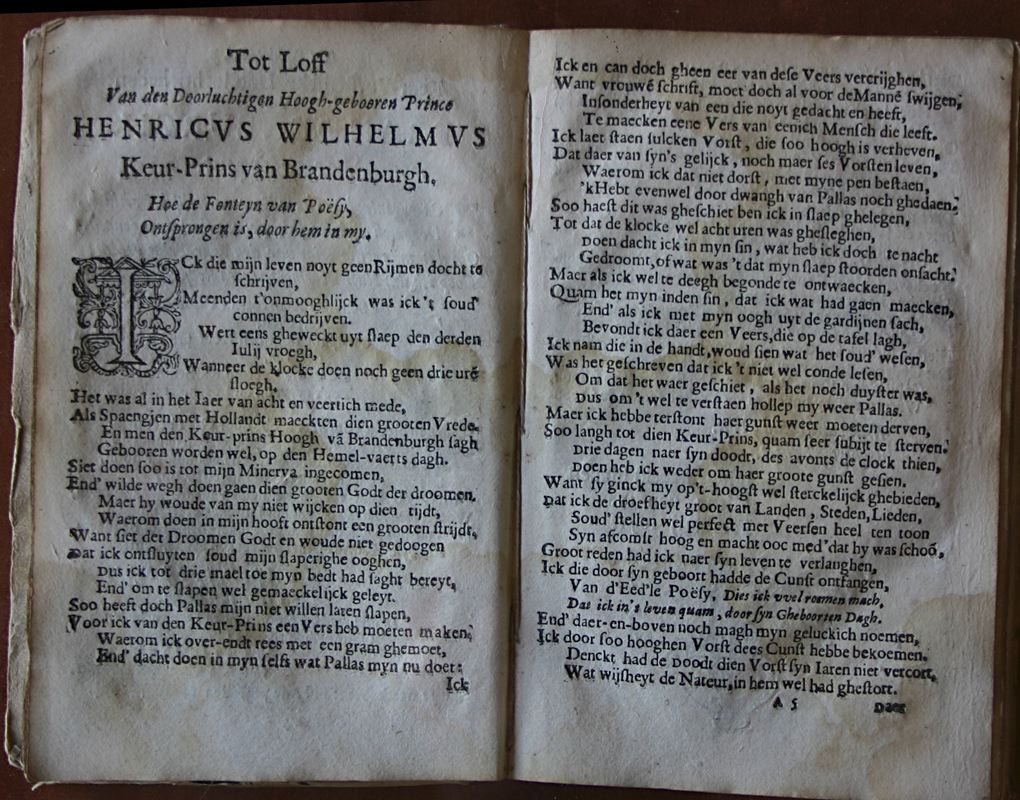 Tot Loff
Van den Doorluchtigen Hoogh-geboeren Prince
HENRICVS WILHELMVS
Keur-Prins van Brandenburgh.
Hoe de Fonteyn van Poësy,
Ontsprongen is, door hem in my.
ICk die mijn leven noyt geen Rijmen docht te
schrijven,
Meenden t'onmooghlijck was ick 't soud'
connen bedrijven.
Wert eens gheweckt uyt slaep den derden
Iulij vroegh,
Wanneer de klocke doen noch geen drie uré
sloegh.
Het was al in het Iaer van acht en veertich mede,
Als Spaengjen met Hollandt maeckten dien grooten Vrede.
En men den Keur-prins Hoogh vã Brandenburgh sagh
Gebooren worden wel, op den Hemel-vaerts dagh.
Siet doen soo is tot mijn Minerva ingecomen,
End' wilde wegh doen gaen dien grooten Godt der droomen.
Maer hy woude van my niet wijcken op dien tijdt,
Waerom doen in mijn hooft ontstont een grooten strijdt,
Want siet der Droomen Godt en woude niet gedoogen
Dat ick ontsluyten soud mijn slaperighe ooghen,
Dus ick tot drie mael toe myn bedt had saght bereyt,
End' om te slapen wel gemaeckelijck geleyt.
Soo heeft doch Pallas mijn niet willen laten slapen,
Voor ick van den Keur-Prins een Vers heb moeten maken;
Waerom ick over-endt rees met een gram ghemoet,
End' dacht doen in myn selfs wat Pallas myn nu doet:
Ick
Ick en can doch gheen eer van dese Veers vercrijghen,
Want vrouwé schrift, moet doch al voor de Manné swijgen;
Insonderheyt van een die noyt gedacht en heeft,
Te maecken eene Vers van eenich Mensch die leeft.
Ick laet staen sulcken Vorst, die soo hoogh is verheven,
Dat daer van syn's gelijck, noch maer ses Vorsten leven,
Waerom ick dat niet dorst, met myne pen bestaen,
'kHebt evenwel door dwangh van Pallas noch ghedaen.
Soo haest dit was gheschiet ben ick in slaep ghelegen,
Tot dat de klocke wel acht uren was ghesleghen,
Doen dacht ick in myn sin, wat heb ick doch te nacht
Gedroomt, of wat was 't dat myn slaep stoorden onsacht.
Maer als ick wel te deegh begonde te ontwaecken,
Quam het myn inden sin, dat ick wat had gaen maecken,
End' als ick met myn oogh uyt de gardijnen sach,
Bevondt ick daer een Veers, die op de tafel lagh,
Ick nam die in de handt, woud sien wat het soud' wesen,
Was het geschreven dat ick 't niet wel conde lesen,
Om dat het waer geschiet, als het noch duyster was,
Dus om 't wel te verstaen hollep my weer Pallas.
Maer ick hebbe terstont haer gunst weer moeten derven,
Soo langh tot dien Keur-Prins, quam seer subijt te sterven.
Drie dagen naer syn doodt, des avonts de clock thien,
Doen heb ick weder om haer groote gunst gesien.
Want sy ginck my op't-hoogst wel sterckelijck ghebieden,
Dat ick de droefheyt groot van Landen, Steden, Lieden,
Soud' stellen wel perfect met Veersen heel ten toon
Syn afcomst hoog en macht ooc med' dat hy was schoõ,
Groot reden had ick naer syn leven te verlanghen,
Ick die door syn geboort hadde de Cunst ontfangen,
Van d'Eed'le Poësy, Dies ick wel roemen mach,
Das ick in't leven quam, door syn Gheboorten Dagh.
End' daer-en-boven noch magh myn geluckich noemen,
Ick door soo hooghen Vorst dees Cunst hebbe bekoemen.
Denckt had de Doodt dien Vorst syn Iaren niet vercort,
Wat wijsheyt de Nateur, in hem wel had ghestort.
A 5
Daer